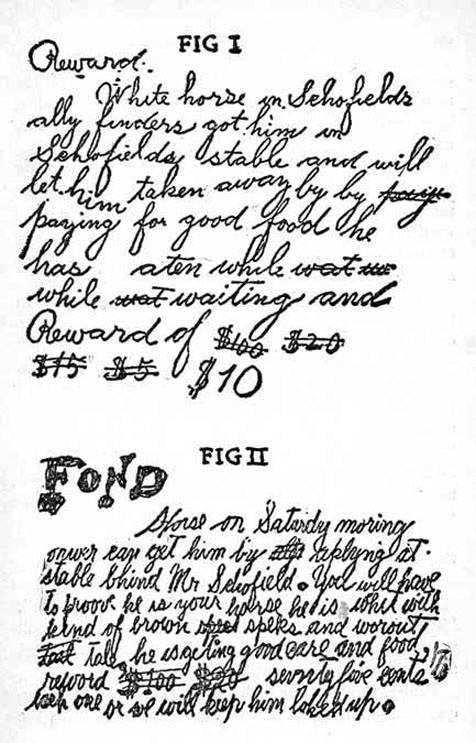 FIG I
Reward.
White horse in Schofields
ally finders got him in
Schofields stable and will
let him taken away by by
paying for good food he
has aten while wat
while wat waiting and
Reward of $100 $20
$15 $5 $10
FIG II
FOND
Horse on Satardy moring
onwer can get him by applying at
stable bhind Mr Schofield. You will have
to proov he is your horse he is whit with
kind of brown speks and worout
tail, he is geting good care and food,
reword $100 $20 seventy five cents
each one or we will keep him locked up.